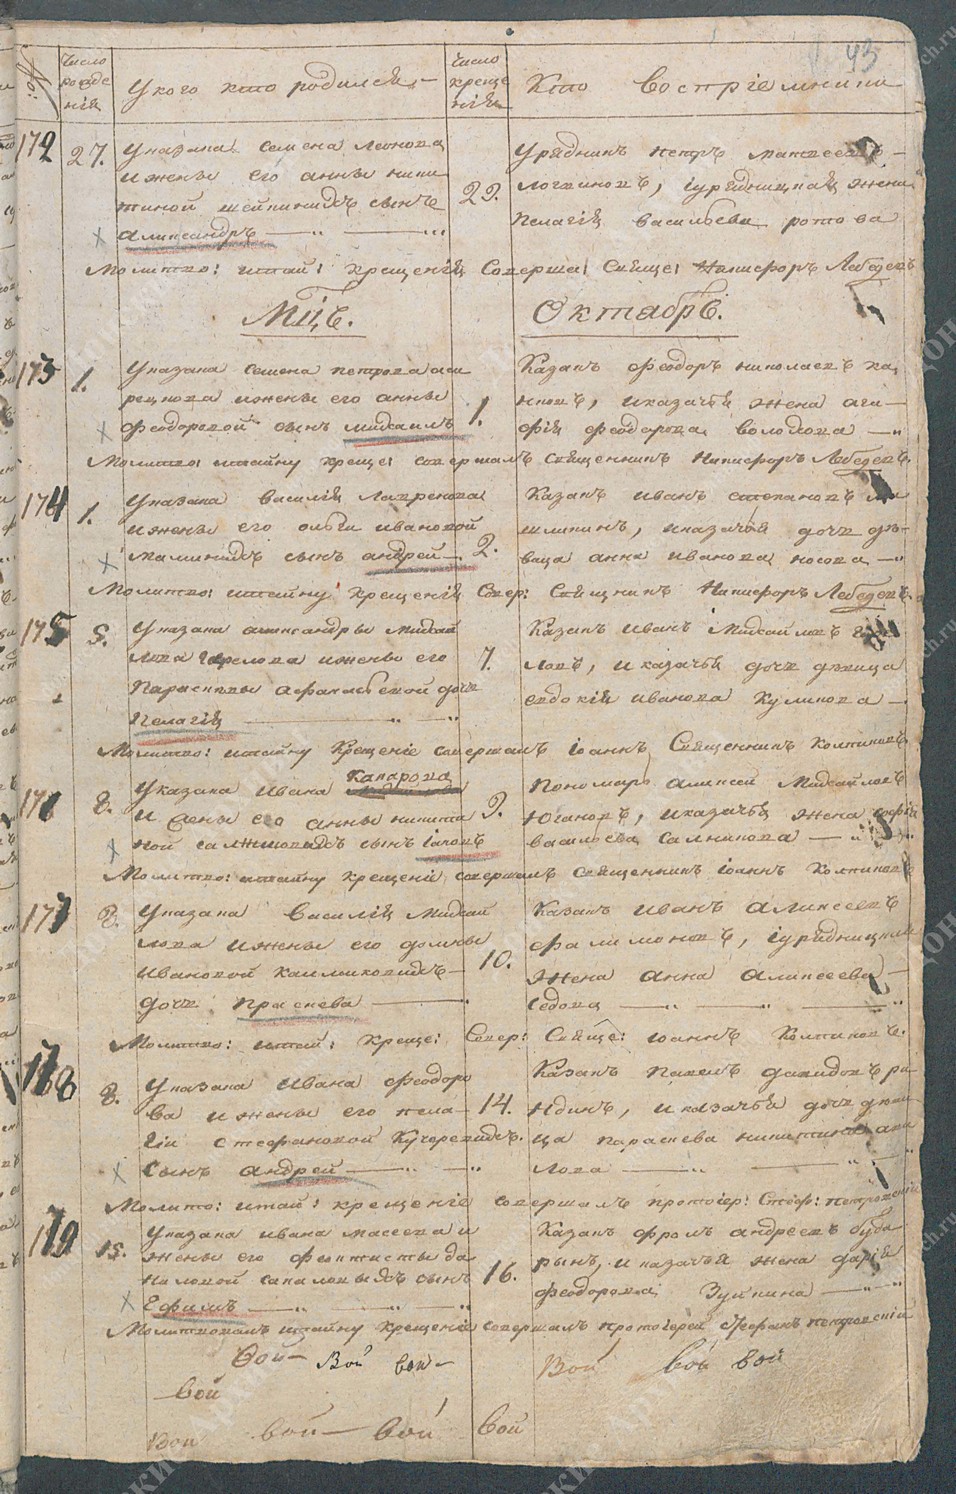 43
№:
Число рожде нія
У кого кто родился
Число креще нія
Кто воспріемники
172
27.
У казака Семена Леонова
и жены его анны ники
тиной сынъ
александръ
29.
Урядникъ петръ матвеевъ
логвиновъ, і урядницкая жена
пелагія васильева ротова
Молитво: итай: крещенія Соверша: Свяще: Никифоръ Лебедевъ
Мцъ. Октабрь.
173
1.
У казака Семена петрова
и жены его анны
феодоровой сынъ михаилъ
1.
Казакъ феодоръ николаевъ
, и казачья жена ага
фія феодорова володова
Молитво: итайну креще: совершалъ священникъ Никифоръ Лебедевъ.
174
1.
У казака василія
и жены его ольги ивановой
сынъ андрей
2.
Казакъ иванъ степановъ
шлинъ, и казачья дочь дѣ-
вица анна иванова носова
Молитво: итайну крещенія Совер: Свящникъ Никифоръ Лебедевъ.
175
5.
У казака александры михай
лова и жены его
Парасковы афанасьевой дочь
Пелагія
7.
Казакъ иванъ михайловъ
ловъ, и казачья дочь дѣвица
евдокія иванова куликова
Молитво: итайну Крещеніе совершалъ іоаннъ Священникъ колпиковъ
176
8.
У казака Ивана Канарова
и жены его анны никита
ной сынъ іаковъ
9.
Пономарь алексей михайловъ
югановъ, и казачья жена софія
васильева Салникова
Молитво: итайну крещеніе совершалъ священникъ іоаннъ Колпиковъ
177
8.
У казака Василія михай
лова и жены его домны
ивановой калмыковыхъ
дочь праскева
10.
Казакъ иванъ алексеевъ
филимоновъ, і урядницкая
жена анна алексеева
Седова
Молитво: итай: креще: Совер: Свяще: іоаннъ Колпиковъ.
178
8.
У казака Ивана феодоро
ва и жены его пела
гіи стефановой Кучеревыхъ.
Сынъ андрей
14.
Казакъ павелъ давидовъ
ндинъ, и казачья дочь дѣви
ца параскева никитина
лова
Молитво: итай: крещеніе совершалъ протоіер: Стеф: петровскій
179
15.
У казака ивана масеева и
жены его феоктисты да
ниловой сапаловыхъ сынъ
Ефимъ
16.
Казакъ фролъ андреевъ бѣда
рынъ, и казачья жена дарія
феодорова Зубкина
Молитвовалъ итайну крещеніе совершалъ протоіерей Стефанъ петровскій
Вой Вой вой Вой вой вой
вой
вой вой вой вой